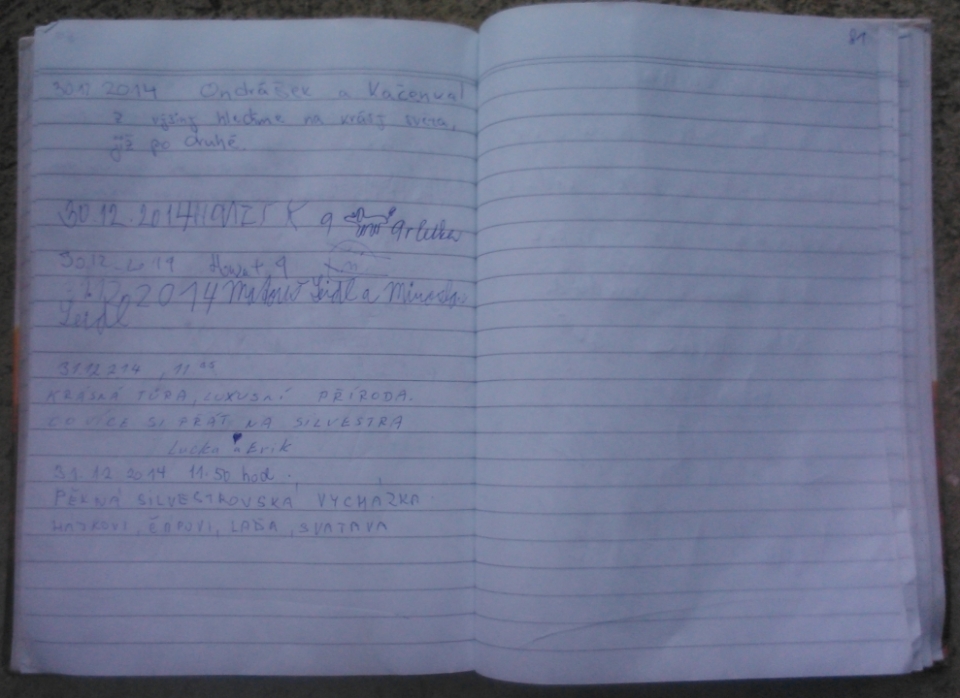 81
30.12 2014 Ondrášek a Kačenva!
z výšiny hledíme na krásy světa,
již po druhé.
30.12.2014 K a Arletka
30.12.2014
2014 Matouš Seidl a Miroslav
Seidl
31.12.214, 11
KRÁSNÁ TÚRA, LUXUSNÍ PŘÍRODA.
CO VÍCE SI PŘÁT NA SILVESTRA
Lucka a Erik
31.12.2014 11.50 hod.
PĚKNÁ SILVESTROVSKÁ VYCHÁZKA
HAJKOVI, ČÁPOVI, LAĎA, SVATAVA